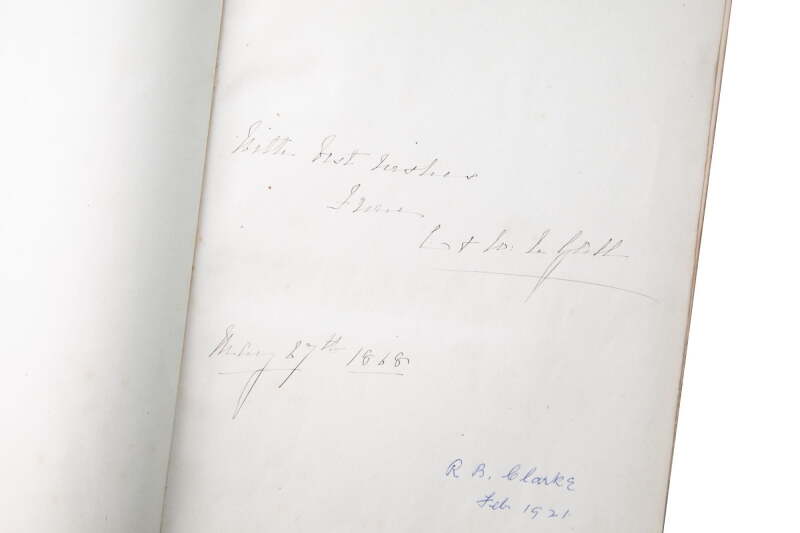 With best wishes
From
May 27th 1868
R B. Clarke
Feb 1921